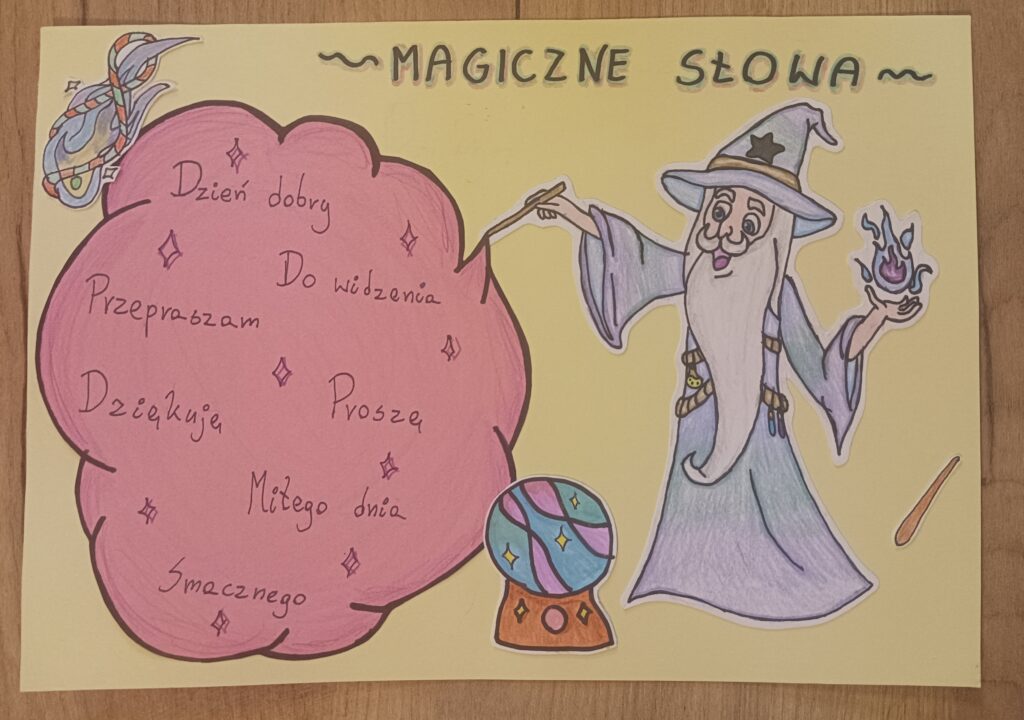 ~MAGICZNE SŁOWA~
Dzień dobry
Do widzenia
Przepraszam
Dziękuję
Proszę
Miłego dnia
Smacznego